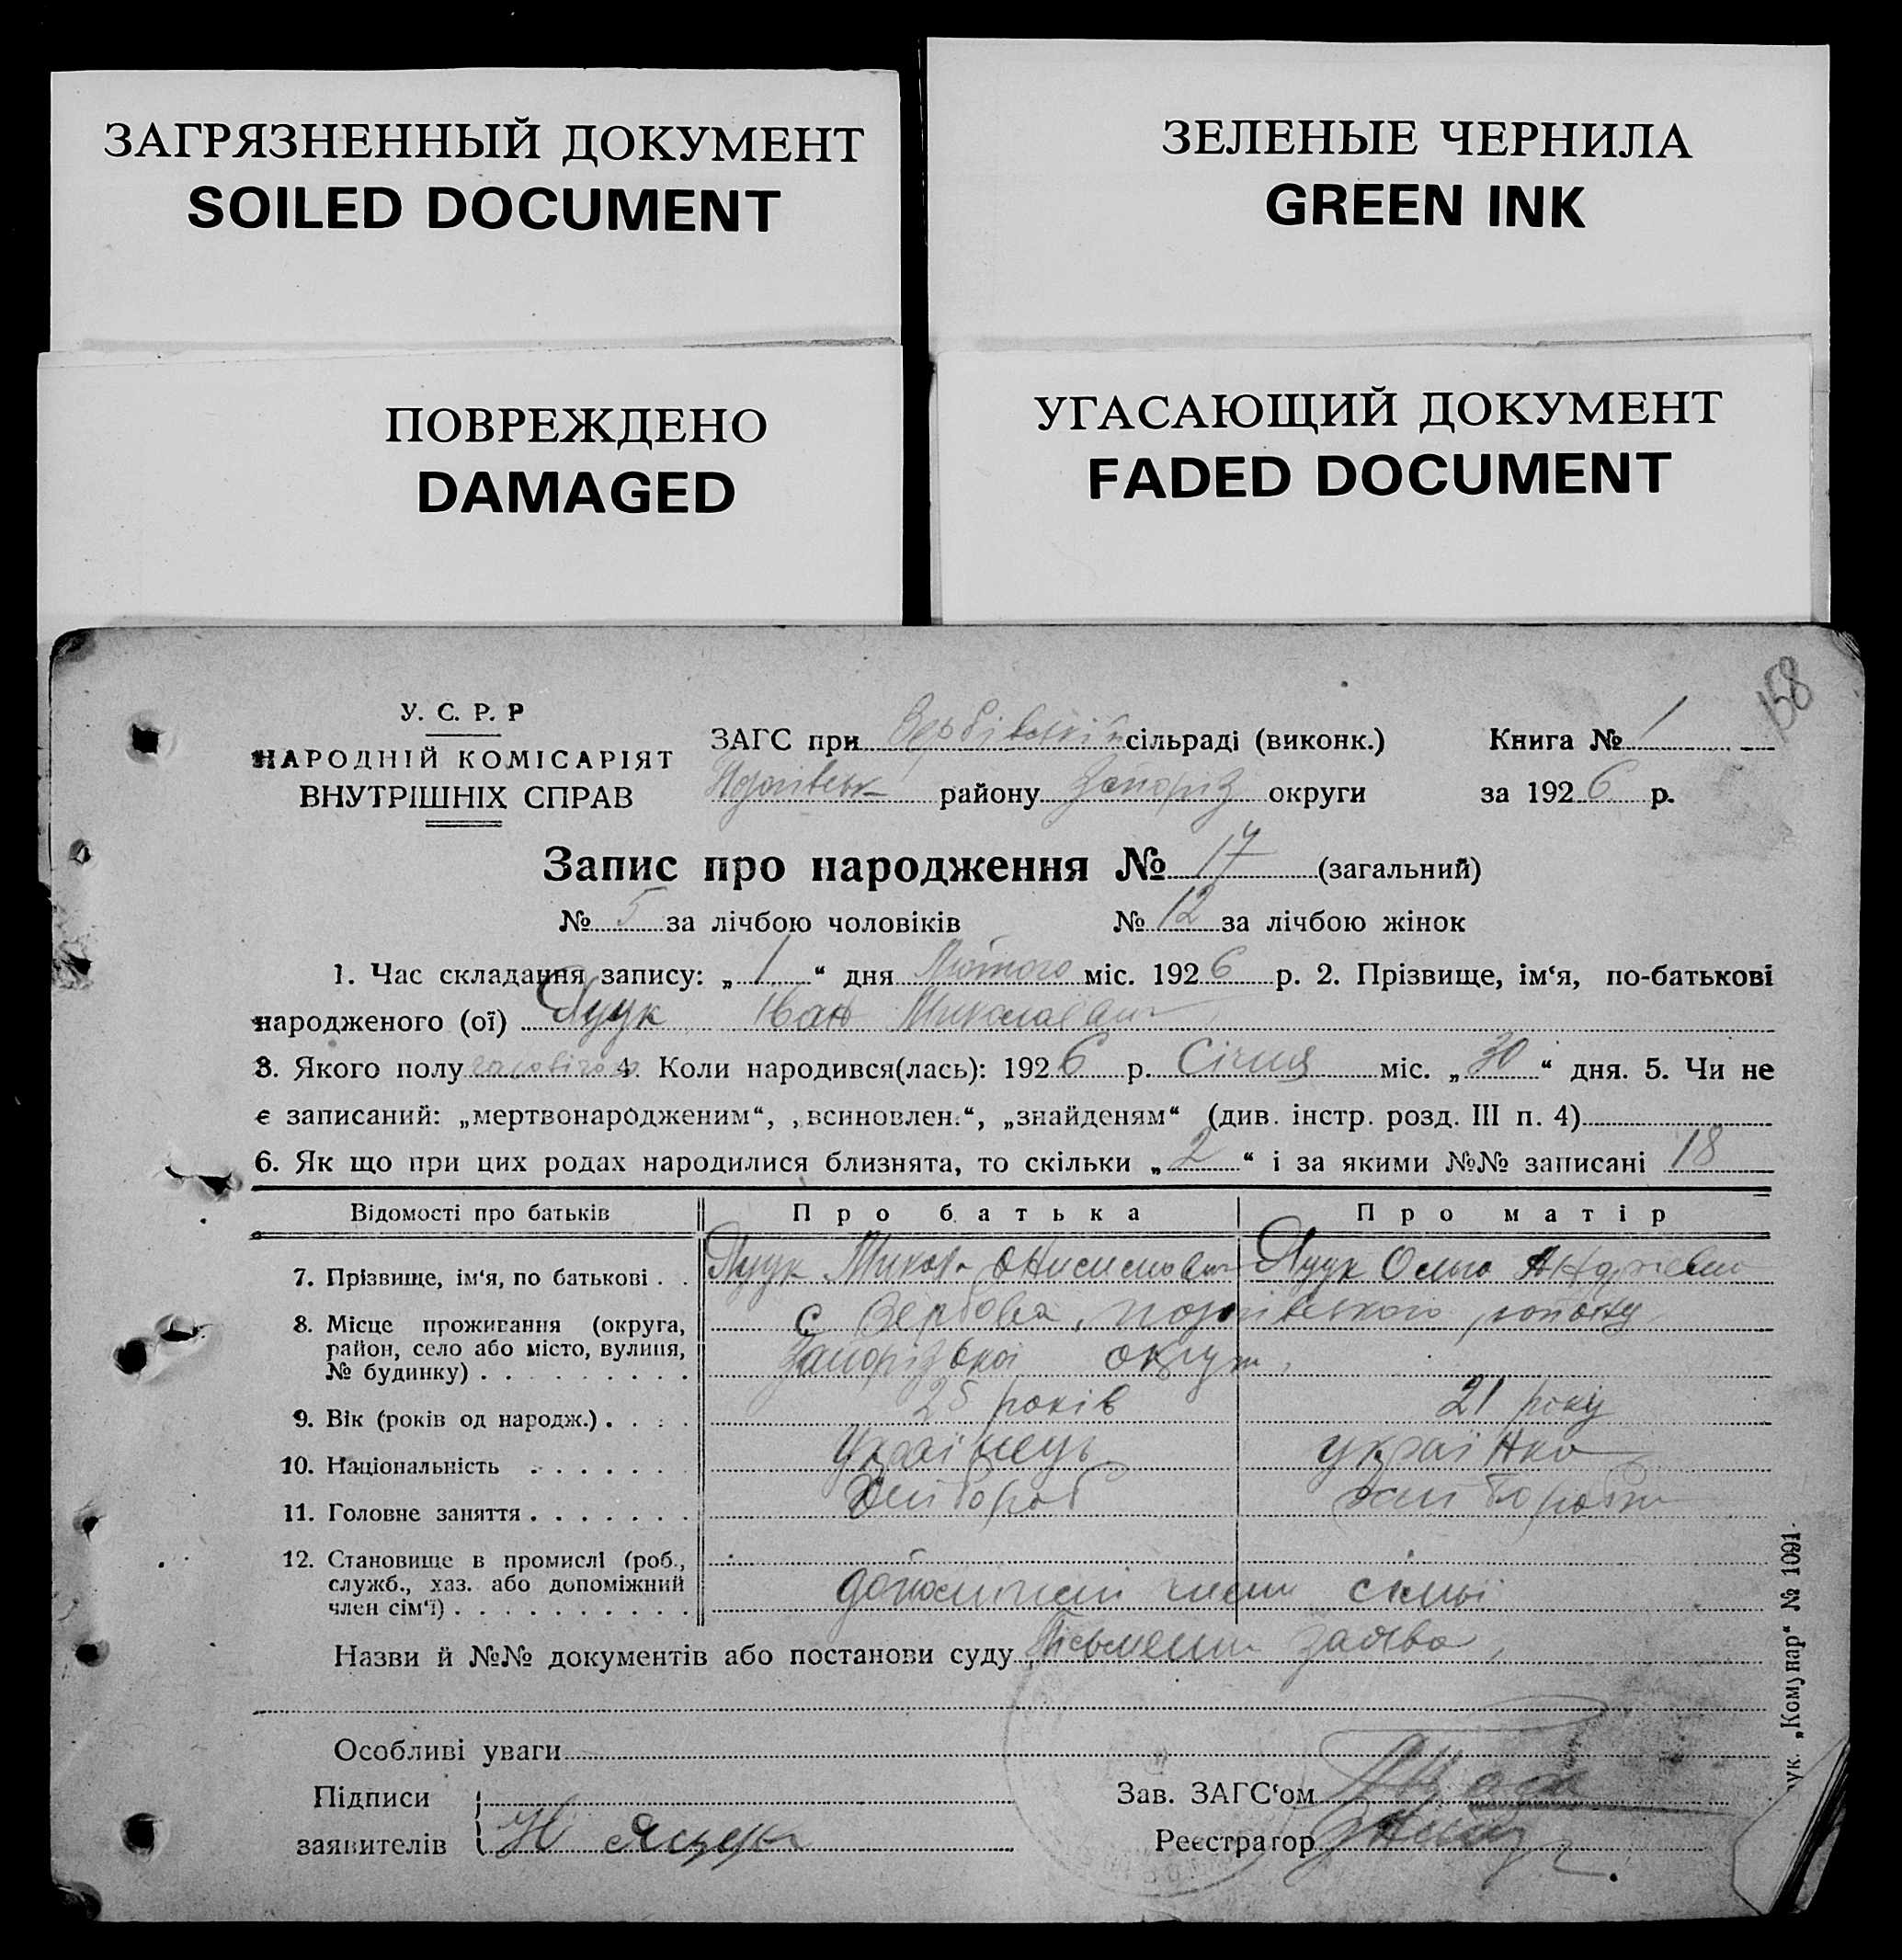 ЗАГРЯЗНЕННЫЙ ДОКУМЕНТ
SOILED DOCUMENT
ЗЕЛЕНЫЕ ЧЕРНИЛА
GREEN INK
ПОВРЕЖДЕНО
DAMAGED
УГАСАЮЩИЙ ДОКУМЕНТ
FADED DOCUMENT
158
У. С. Р. Р
НАРОДНІЙ КОМІСАРІЯТ
ВНУТРІШНІХ СПРАВ
ЗАГС при Вербівській сільраді (виконк.) Книга № 1
району Запоріз округи за 1926 р.
Запис про народження № 17 (загальний)
№ 5 за лічбою чоловіків № 12 за лічбою жінок
1. Час складання запису: „1“ дня Лютого міс. 1926 р. 2. Прізвище, ім‘я, по-батькові
народженого (ої) Яцук Іван Миколаєвич
3. Якого полу 4. Коли народився(лась): 1926 р. Січня міс. „30“ дня. 5. Чи не
є записаний: „мертвонародженим“, „всиновлен.“, „знайденям“ (див. інстр. розд. III п. 4)
6. Як що при цих родах народилися близнята, то скільки „2“ і за якими №№ записані 18
Відомості про батьків Про батька Про матір
7. Прізвище, ім‘я, по батькові . . Яцук Микола Яцук Ольга
8. Місце проживання (округа, район, село або місто, вулиця, № будинку) . . . . . . . . . с Вербова, району
Запорізької округи,
9. Вік (років од народж.) . . . . 25 років 21 року
10. Національність . . . . . . Українець українка
11. Головне заняття . . . . . . . хлібороб
12. Становище в промислі (роб., служб., хаз. або допоміжний член сім‘ї) . . . . . . . . . . член сімї
Назви й №№ документів або постанови суду заява,
Особливі уваги
Підписи
заявителів Н Яцук
Зав. ЗАГС‘ом
Реєстратор
„Комунар“ № 1091